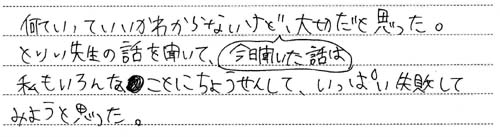 何ていっていいかわからないけど、大切だと思った。
とりい先生の話を聞いて、今日聞いた話は
私もいろんなことにちょうせんして、いっぱい失敗して
みようと思った。